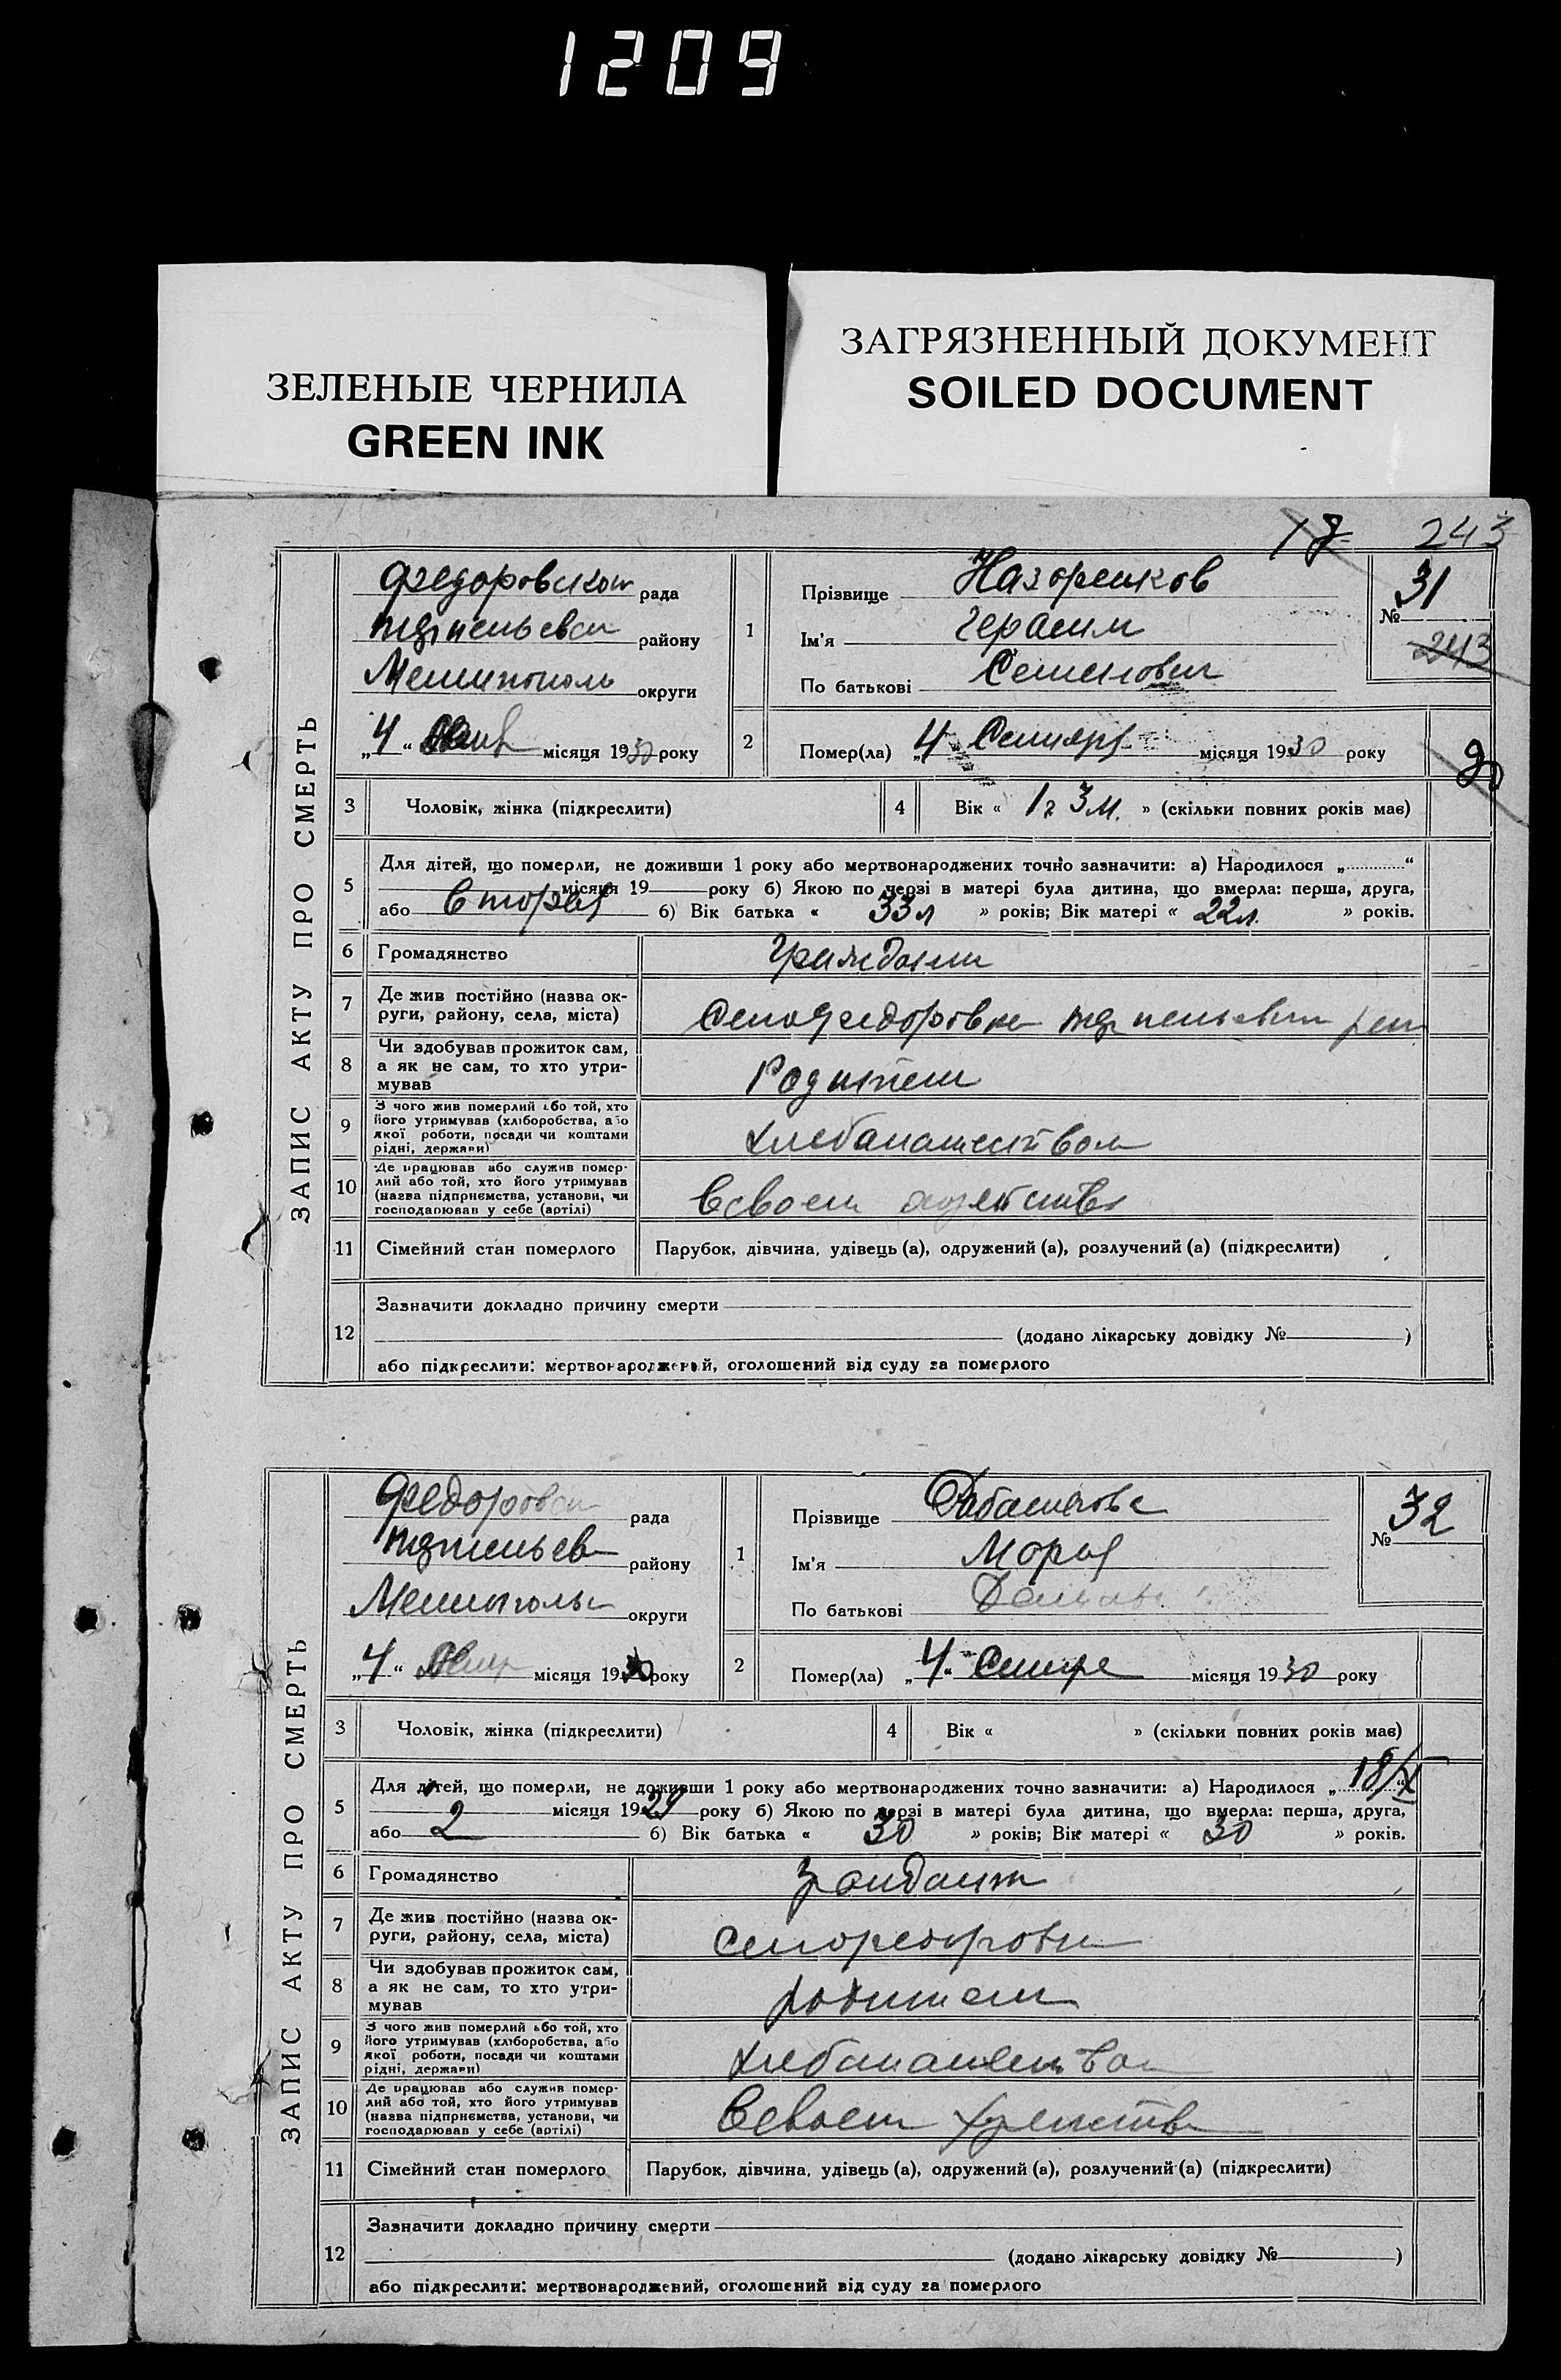 1209
ЗЕЛЕНЫЕ ЧЕРНИЛА
GREEN INK
ЗАГРЯЗНЕННЫЙ ДОКУМЕНТ
SOILED DOCUMENT
243
ЗАПИС АКТУ ПРО СМЕРТЬ
рада
району
округи
„4“ місяця 1930 року
1
Прізвище Назоренков
Ім'я Герасим
По батькові Семенович
№ 31
243
2
Помер(ла) „4“ місяця 1930 року
3 Чоловік, жінка (підкреслити)
4 Вік « 1 г 3 м. » (скільки повних років має)
5 Для дітей, що померли, не доживши 1 року або мертвонароджених точно зазначити: а) Народилося „ “
місяця 19 року б) Якою по черзі в матері була дитина, що вмерла: перша, друга,
або вторая б) Вік батька « 33 л » років; Вік матері « 22 л. » років.
6 Громадянство
7 Де жив постійно (назва ок-
руги, району, села, міста)
8 Чи здобував прожиток сам,
а як не сам, то хто утри-
мував
Родители
9 З чого жив померлий або той, хто
його утримував (хліборобства, або
якої роботи, посади чи коштами
рідні, держави)
хлебопашеством
10 Де працював або служив помер-
лий або той, хто його утримував
(назва підприємства, установи, чи
господарював у себе (артілі)
11 Сімейний стан померлого Парубок, дівчина, удівець (а), одружений (а), розлучений (а) (підкреслити)
12 Зазначити докладно причину смерти
(додано лікарську довідку № )
або підкреслити: мертвонароджений, оголошений від суду за померлого
ЗАПИС АКТУ ПРО СМЕРТЬ
рада
району
округи
„4“ місяця 1930 року
1
Прізвище
Ім'я Мория
По батькові
№ 32
2
Помер(ла) „4“ місяця 1930 року
3 Чоловік, жінка (підкреслити)
4 Вік « » (скільки повних років має)
5 Для дітей, що померли, не доживши 1 року або мертвонароджених точно зазначити: а) Народилося „ 18/X “
місяця 1929 року б) Якою по черзі в матері була дитина, що вмерла: перша, друга,
або 2 б) Вік батька « 30 » років; Вік матері « 30 » років.
6 Громадянство
7 Де жив постійно (назва ок-
руги, району, села, міста)
8 Чи здобував прожиток сам,
а як не сам, то хто утри-
мував
родители
9 З чого жив померлий або той, хто
його утримував (хліборобства, або
якої роботи, посади чи коштами
рідні, держави)
хлебопашеством
10 Де працював або служив помер-
лий або той, хто його утримував
(назва підприємства, установи, чи
господарював у себе (артілі)
11 Сімейний стан померлого Парубок, дівчина, удівець (а), одружений (а), розлучений (а) (підкреслити)
12 Зазначити докладно причину смерти
(додано лікарську довідку № )
або підкреслити: мертвонароджений, оголошений від суду за померлого